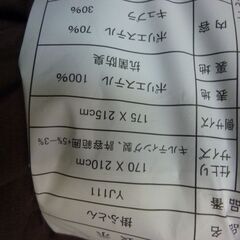 品名 掛ふとん
品番 YJ111
仕上りサイズ 170 X 210cm
キルティング製、許容範囲+5%-3%
側サイズ 175 X 215cm
表地 ポリエステル 100%
裏地 抗菌防臭
内容 ポリエステル 70%
キュプラ 30%